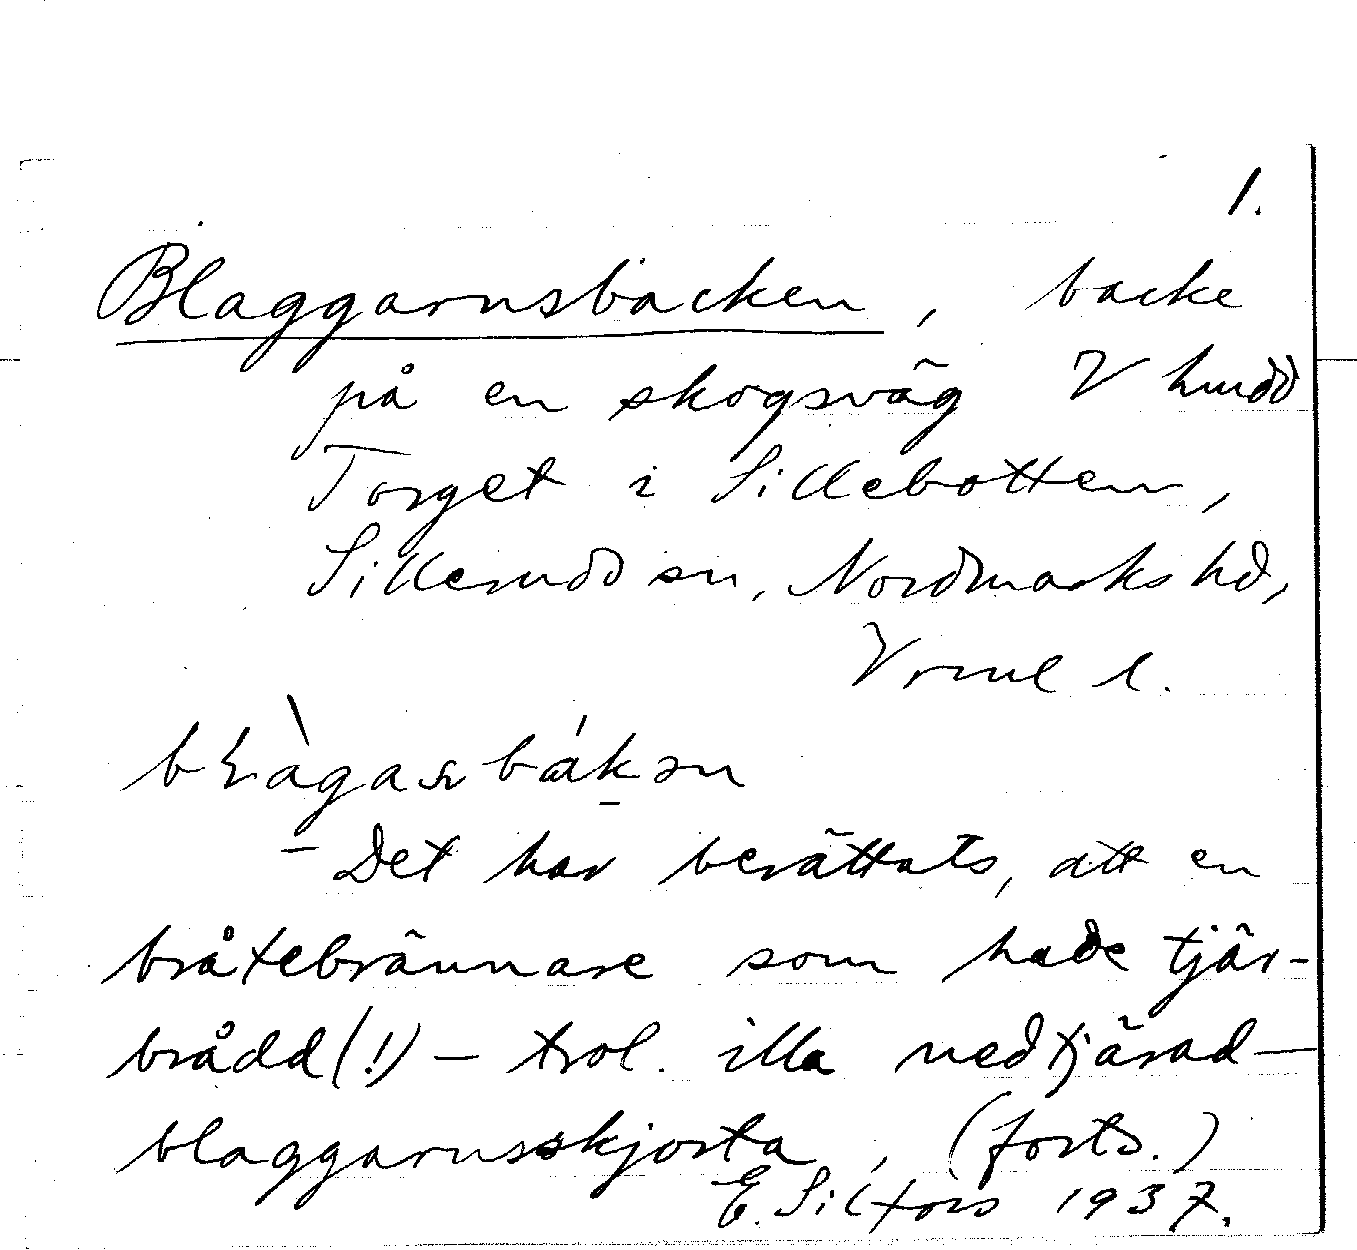 1.
Blaggarnsbacken, backe
på en skogsväg V
Torget i Sillebotten,
Sillerudd sn, Nordmarks hd,
Vrml l.
Det har berättats, att en
bråtebrännare som hade tjär-
brådd(!) – trol. illa nedtjärad –
blaggarnsskjorta, (forts.)
E. Silfors 1937.